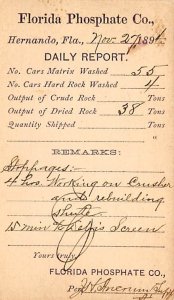 Florida Phosphate Co.,
Hernando, Fla., Nov. 25, 189
DAILY REPORT.
No. Cars Matrix Washed 55
No. Cars Hard Rock Washed 4
Output of Crude Rock Tons
Output of Dried Rock 38 Tons
Quantity Shipped Tons
REMARKS:
Stoppages:
4 hrs. Working on Crusher
and rebuilding
Shute
15 min to Screen
Yours truly,
FLORIDA PHOSPHATE CO.,
Per